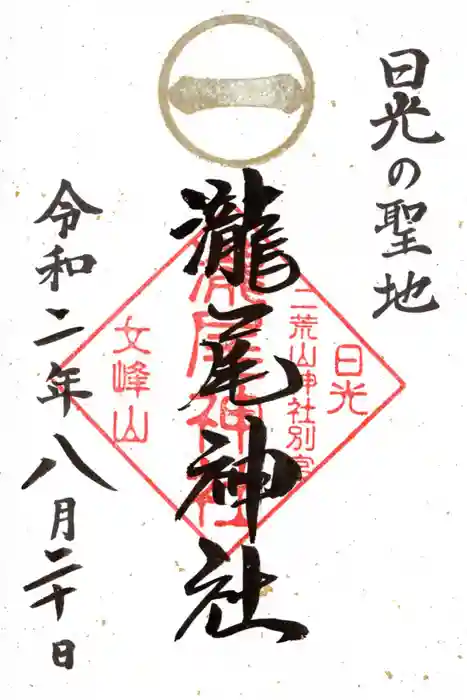 日光の聖地
瀧尾神社
令和二年八月二十日
日光
二荒山神社別宮
瀧尾神社
女峰山